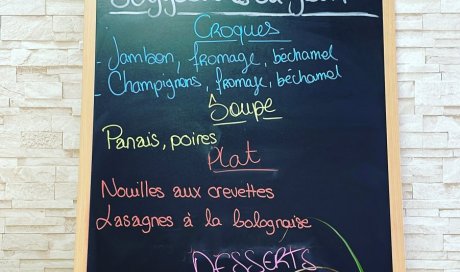 Croques
- Jambon, fromage, béchamel
- Champignons, fromage, béchamel
Soupe
Panais, poires
Plat
Nouilles aux crevettes
Lasagnes à la bolognaise
DESSERTS